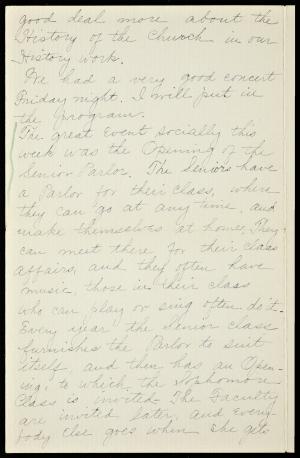 good deal more about the
History of the Church in our
History work.
We had a very good concert
Friday night. I will put in
the program.
The great Event socially this
week was the Opening of the
Senior Parlor. The Seniors have
a Parlor for their class, where
they can go at any time, and
make themselves at home. They
can meet there for their class
affairs, and they often have
music, those in their class
who can play or sing often do it.
Every year the Senior class
furnishes the Parlor to suit
itself, and then has an Open-
ing, to which the Sophomore
Class is invited. The Faculty
are invited later, and Every-
body else goes when she gets